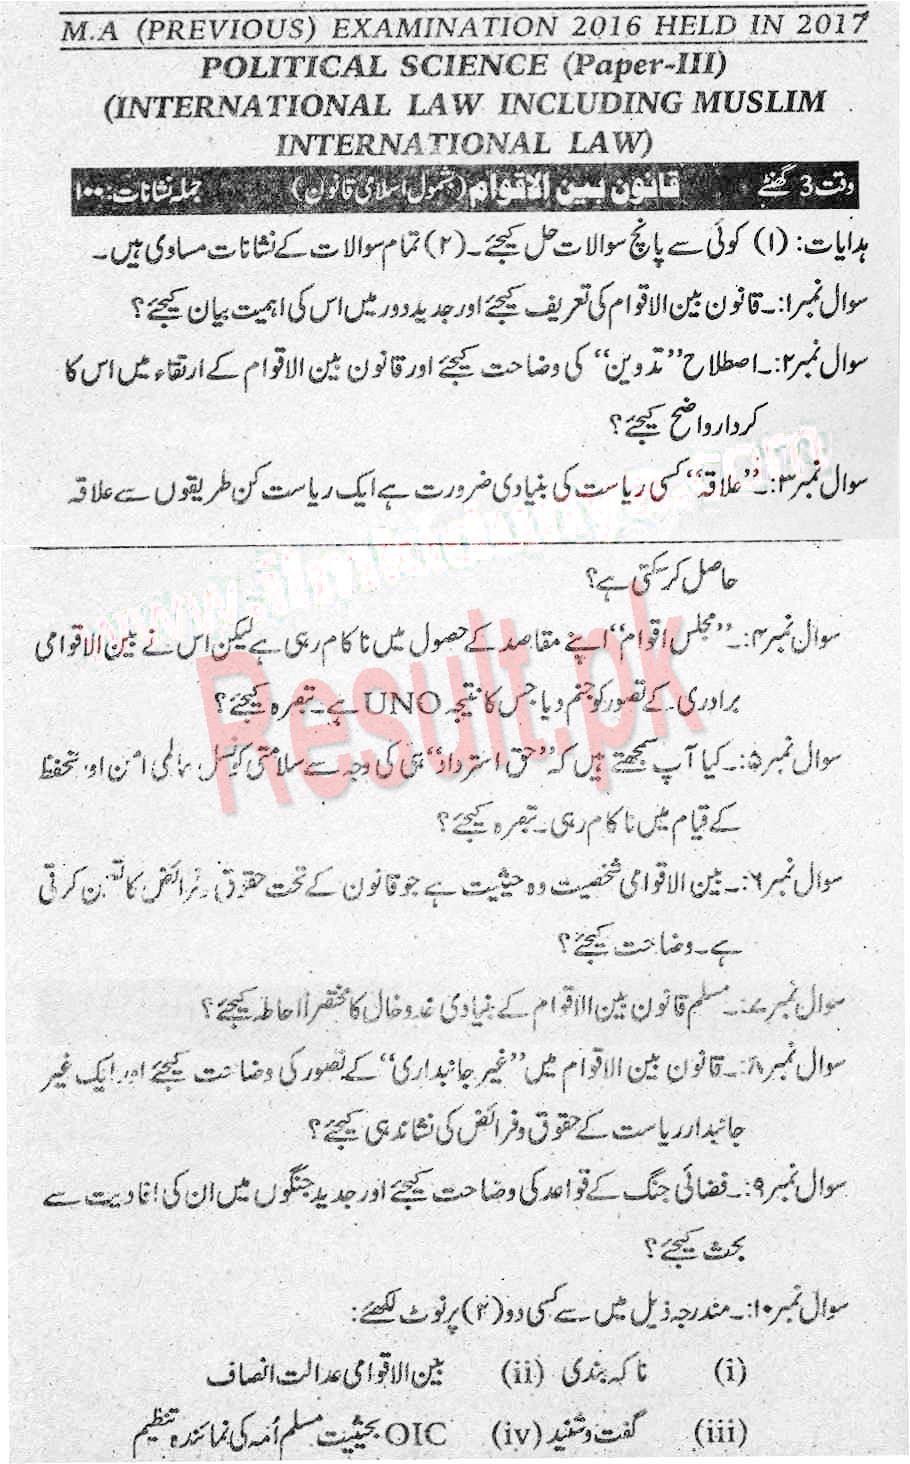 M.A (PREVIOUS) EXAMINATION 2016 HELD IN 2017
POLITICAL SCIENCE (Paper-III)
(INTERNATIONAL LAW INCLUDING MUSLIM
INTERNATIONAL LAW)
وقت 3 گھنٹے قانون بین الاقوام (بشمول اسلامی قانون) جملہ نشانات: ۱۰۰
ہدایات: (۱) کوئی سے پانچ سوالات حل کیجئے۔ (۲) تمام سوالات کے نشانات مساوی ہیں۔
سوال نمبر۱:۔ قانون بین الاقوام کی تعریف کیجئے اور جدید دور میں اس کی اہمیت بیان کیجئے؟
سوال نمبر۲:۔ اصطلاح ”تدوین“ کی وضاحت کیجئے اور قانون بین الاقوام کے ارتقاء میں اس کا
کردار واضح کیجئے؟
سوال نمبر۳:۔ ”علاقہ“ کسی ریاست کی بنیادی ضرورت ہے ایک ریاست کن طریقوں سے علاقہ
حاصل کر سکتی ہے؟
سوال نمبر۴:۔ ”مجلس اقوام“ اپنے مقاصد کے حصول میں ناکام رہی ہے لیکن اس نے بین الاقوامی
برادری کے تصور کو جنم دیا جس کا نتیجہ UNO ہے۔ تبصرہ کیجئے؟
سوال نمبر۵:۔ کیا آپ سمجھتے ہیں کہ ”حق استرداد“ ہی کی وجہ سے سلامتی کونسل عالمی امن اور تحفظ
کے قیام میں ناکام رہی۔ تبصرہ کیجئے؟
سوال نمبر۶:۔ بین الاقوامی شخصیت وہ حیثیت ہے جو قانون کے تحت حقوق و فرائض کا تعین کرتی
ہے۔ وضاحت کیجئے؟
سوال نمبر۷:۔ مسلم قانون بین الاقوام کے بنیادی خدوخال کا مختصراً احاطہ کیجئے؟
سوال نمبر۸:۔ قانون بین الاقوام میں ”غیر جانبداری“ کے تصور کی وضاحت کیجئے اور ایک غیر
جانبدار ریاست کے حقوق و فرائض کی نشاندہی کیجئے؟
سوال نمبر۹:۔ فضائی جنگ کے قواعد کی وضاحت کیجئے اور جدید جنگوں میں ان کی افادیت سے
بحث کیجئے؟
سوال نمبر۱۰:۔ مندرجہ ذیل میں سے کسی دو (۲) پر نوٹ لکھئے:
(i) ناکہ بندی (ii) بین الاقوامی عدالت انصاف
(iii) گفت و شنید (iv) OIC بحیثیت مسلم اُمہ کی نمائندہ تنظیم
Result.pk